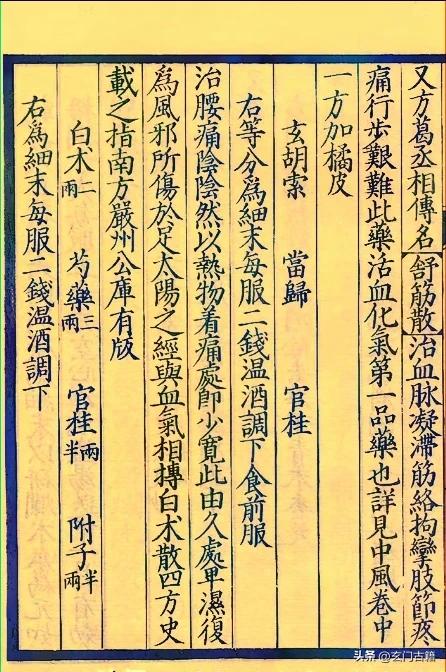 又方葛丞相傳名舒筋散治血脉凝滯筋絡拘攣肢節疼
痛行步艱難此藥活血化氣第一品藥也詳見中風卷中
一方加橘皮
玄胡索 當歸 官桂
右等分爲細末每服二錢温酒調下食前服
治腰痛陰陰然以熱物着痛處即少寬此由久處卑濕復
爲風邪所傷於足太陽之經與血氣相摶白术散四方史
載之指南方嚴州公庫有版
白术二兩 芍藥三兩 官桂兩半 附子半兩
右爲細末每服二錢温酒調下
头条 @玄门古籍